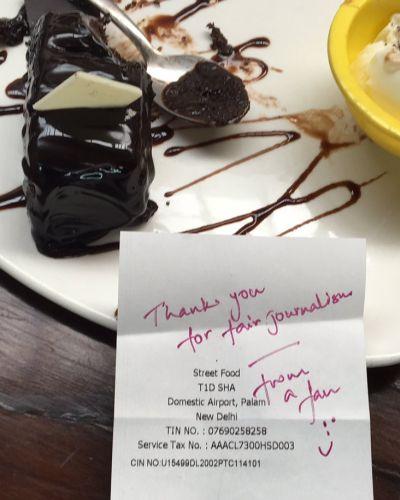 Thank you
for fair journalism
from
a fan
:)
Street Food
T1D SHA
Domestic Airport, Palam
New Delhi
TIN NO. : 07690258258
Service Tax No. : AAACL7300HSD003
CIN NO:U15499DL2002PTC114101